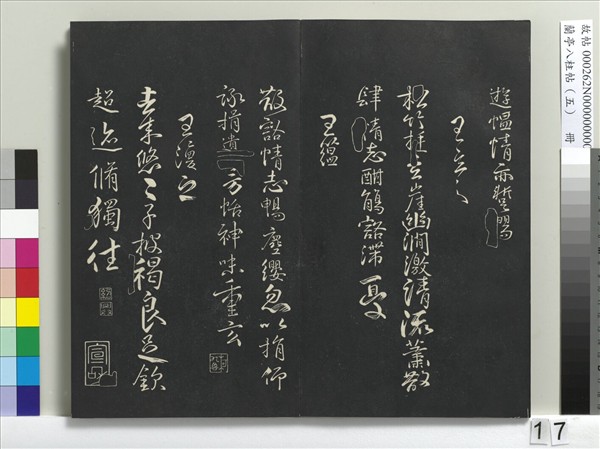 遊愠情亦暫暢
王玄之
松竹挺巖崖幽澗激清流蕭散
肆情志酣觴豁滯憂
王蘊
散豁情志暢塵纓忽以捐仰
詠挹遺芳怡神味重玄
王渙之
去來悠悠子披褐良足欽
超迹脩獨往
故帖 000262N000000000
蘭亭八柱帖（五） 冊
17